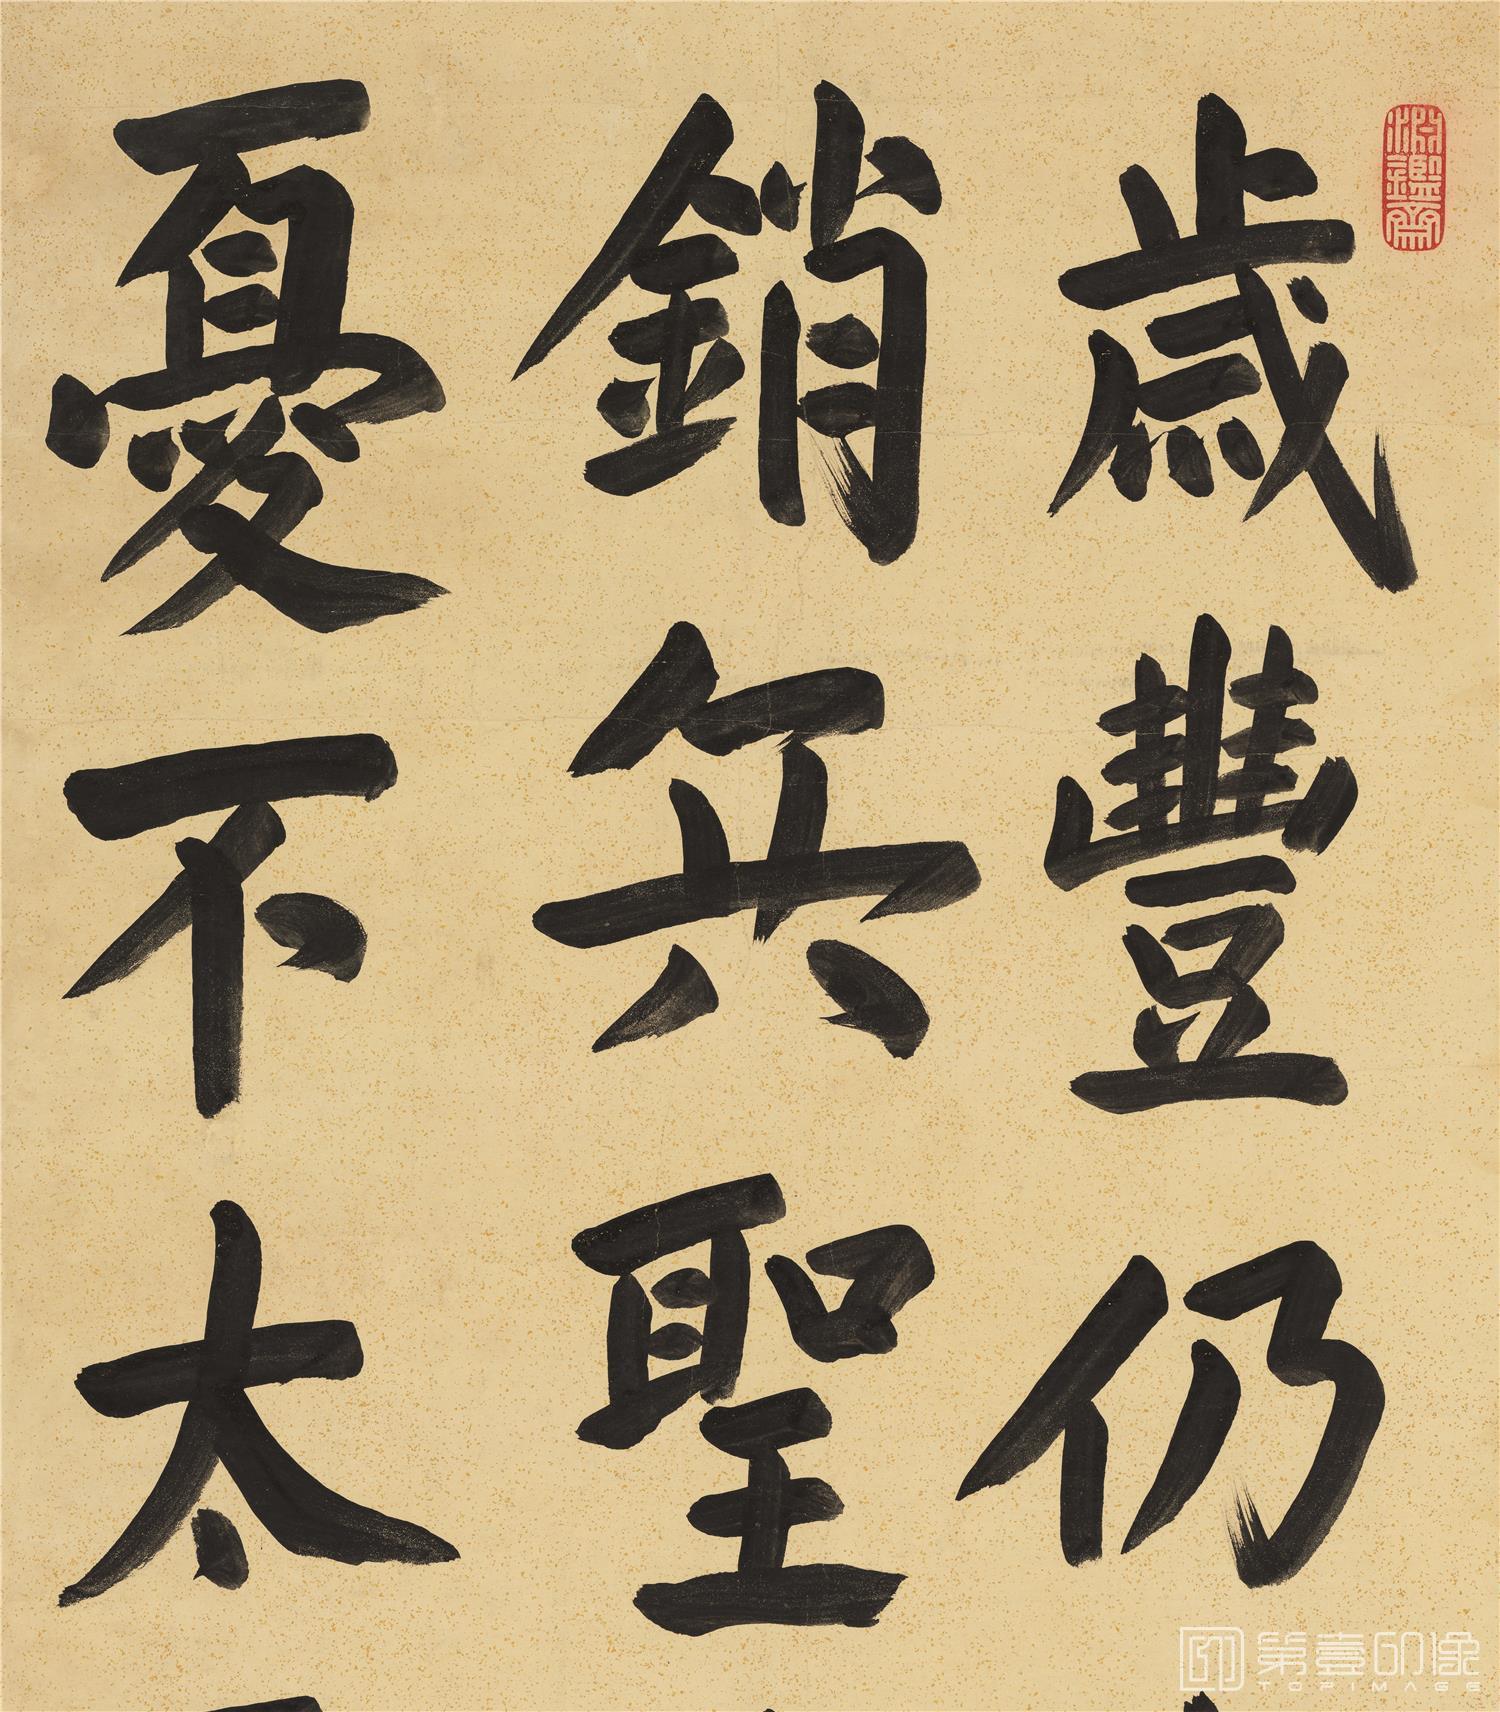 淵鑑齋
歲豐仍
銷兵聖
憂不太
第壹印像
TOPIMAGE